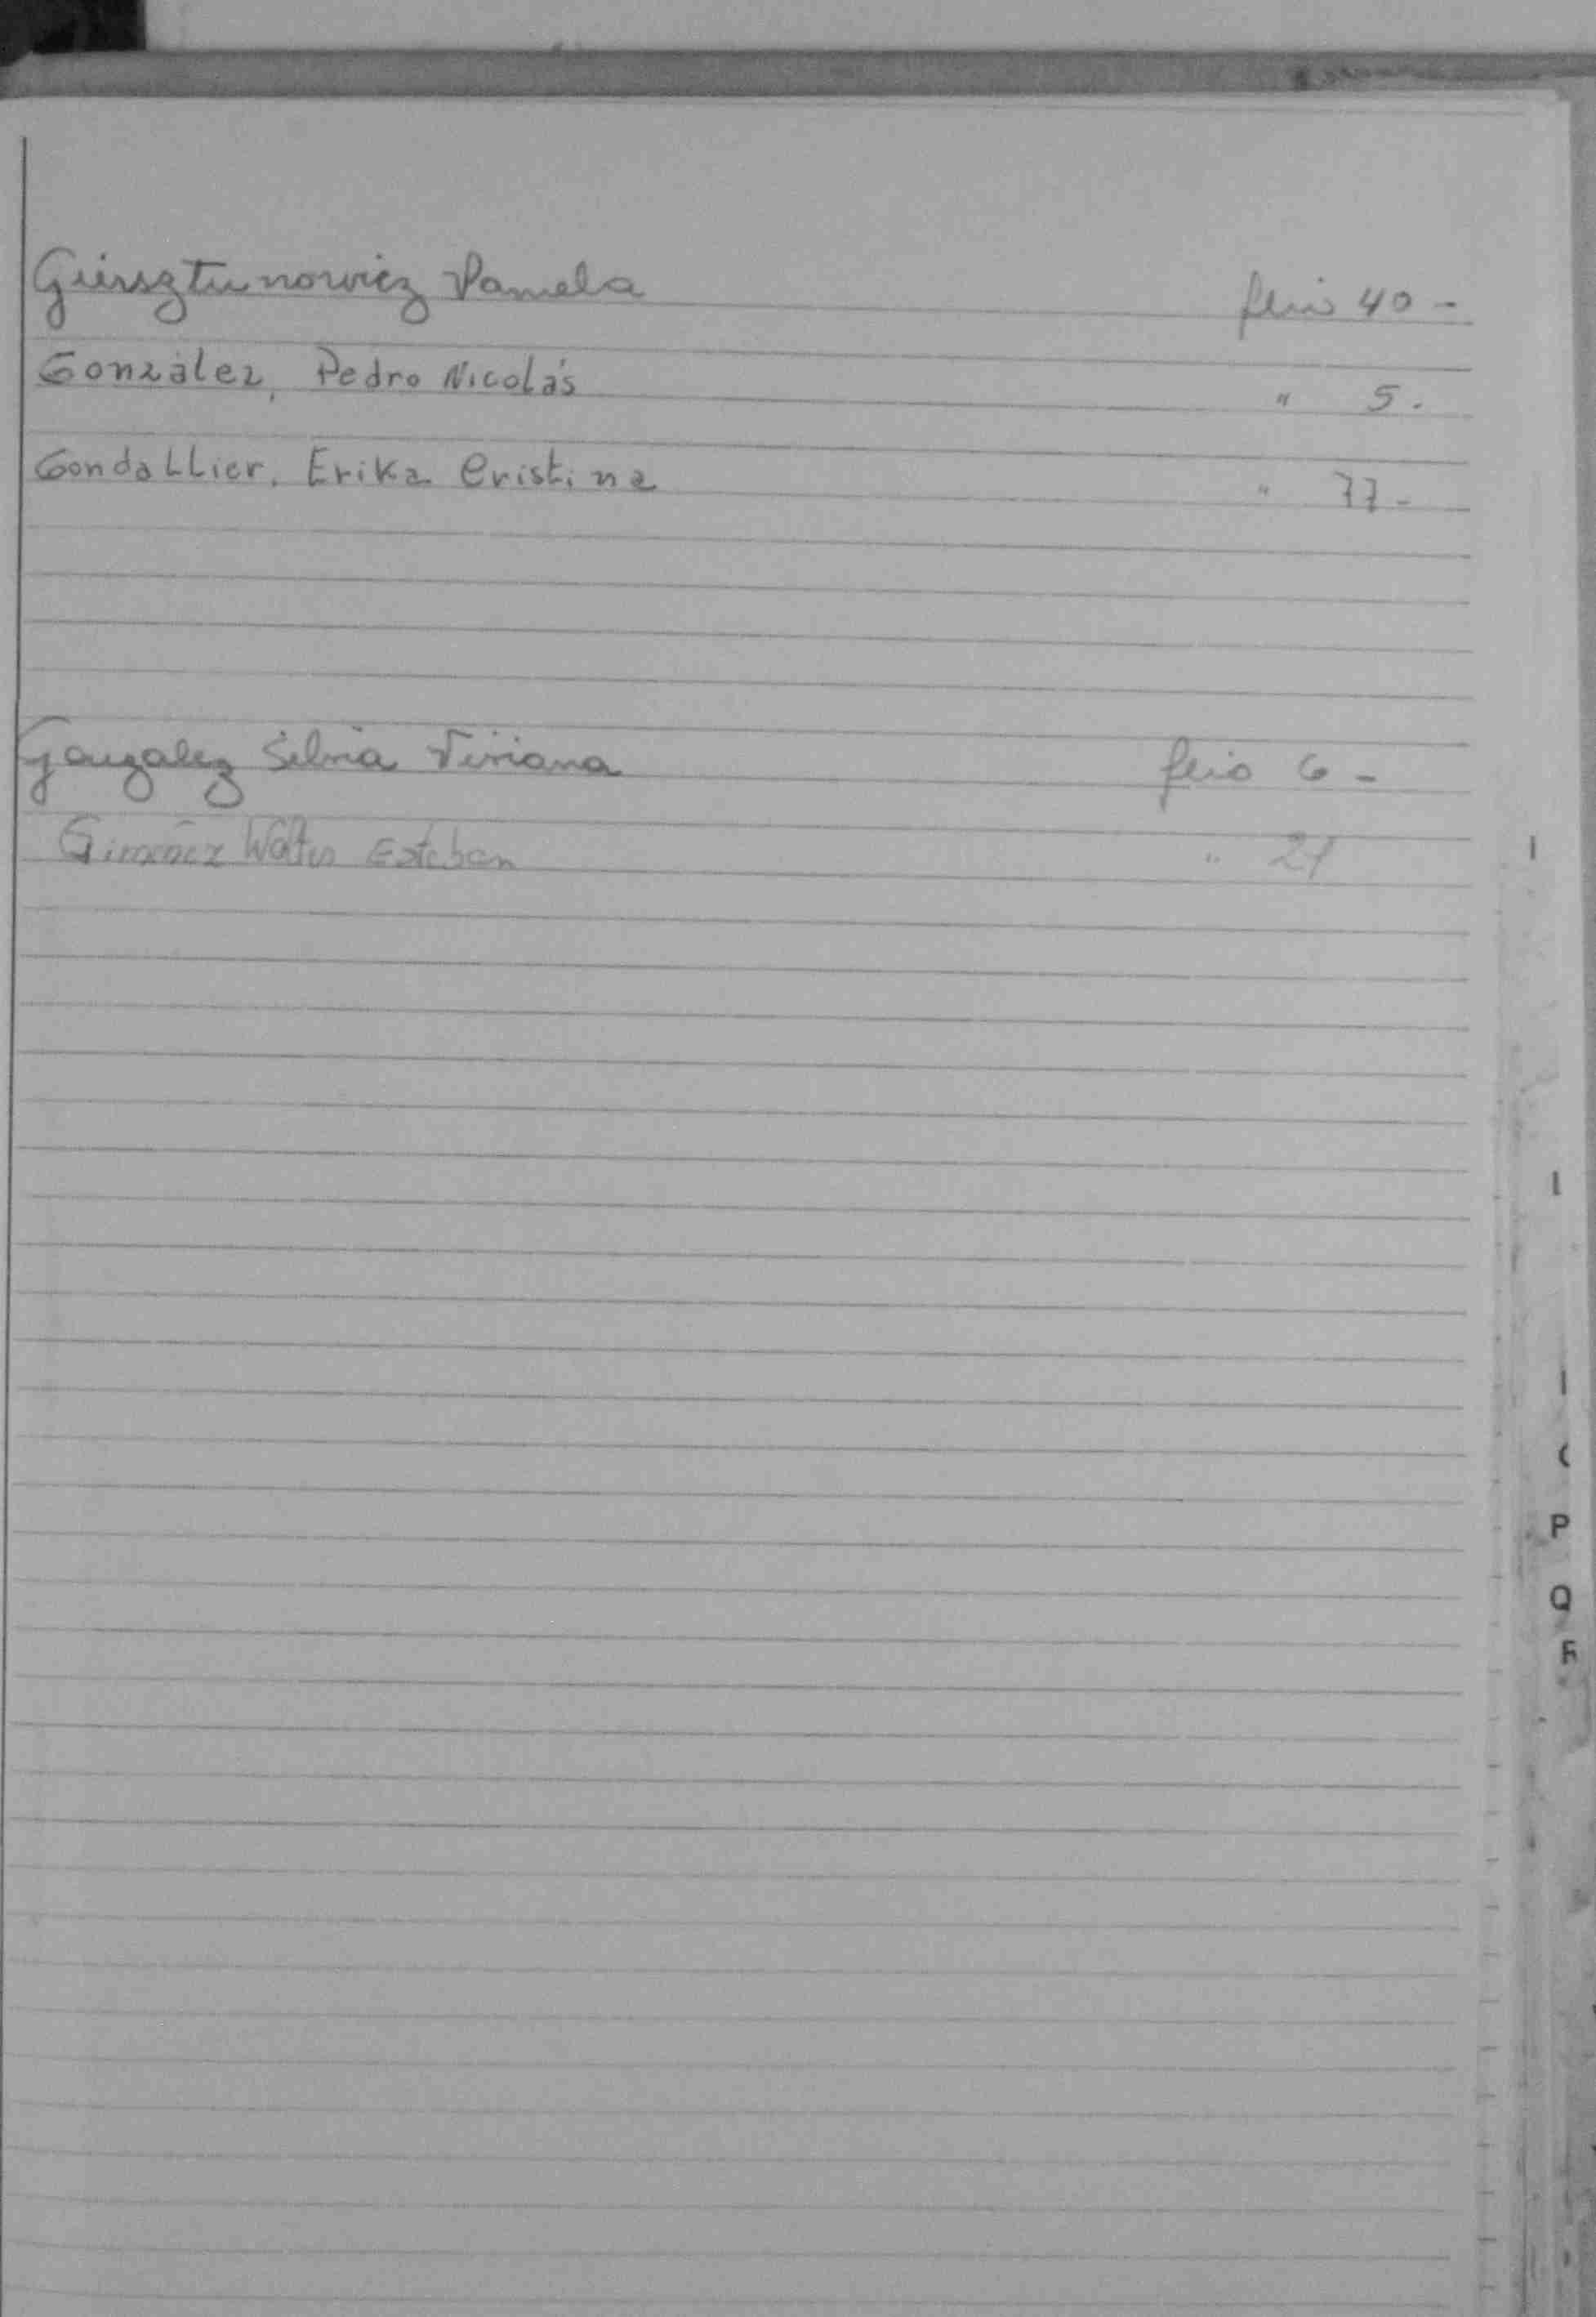 Giersztunowicz Pamela folio 40 -
González, Pedro Nicolás " 5.
Gondallier, Erika Cristina " 77 -
Gonzalez Silvia Viviana folio 6 -
Gimenez Walter Esteban " 21
P
Q
R